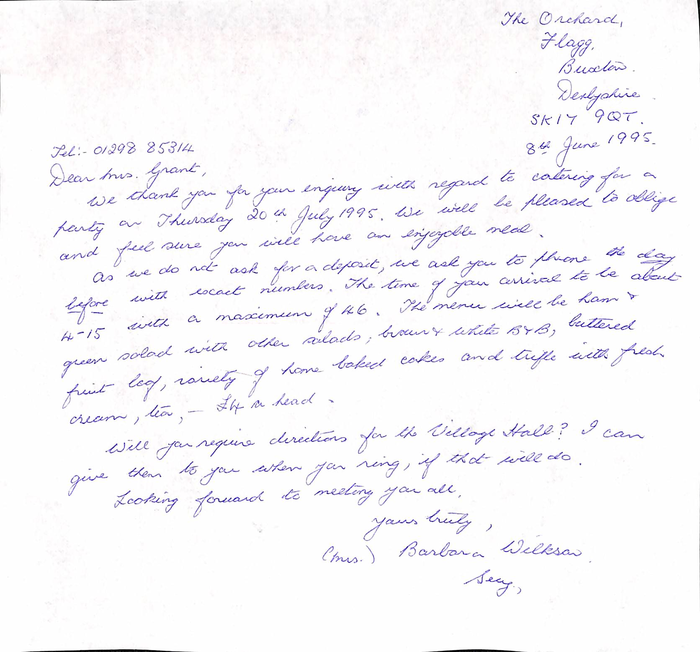 The Orchard,
Flagg,
Buxton.
Derbyshire.
SK17 9QT.
8th June 1995.
Tel:- 01298 85314
Dear Mrs. Grant,
We thank you for your enquiry with regard to catering for a
party on Thursday 20th July 1995. We will be pleased to oblige
and feel sure you will have an enjoyable meal.
As we do not ask for a deposit, we ask you to phone the day
before with exact numbers. The time of your arrival to be about
4-15 with a maximum of 46. The menu will be ham &
green salad with other salads, brown & white B&B, buttered
fruit loaf, variety of home baked cakes and trifle with fresh
cream, tea, - £4 a head.
Will you require directions for the Village Hall? I can
give them to you when you ring, if that will do.
Looking forward to meeting you all.
Yours truly,
(Mrs.) Barbara Wilkson.
Secy,